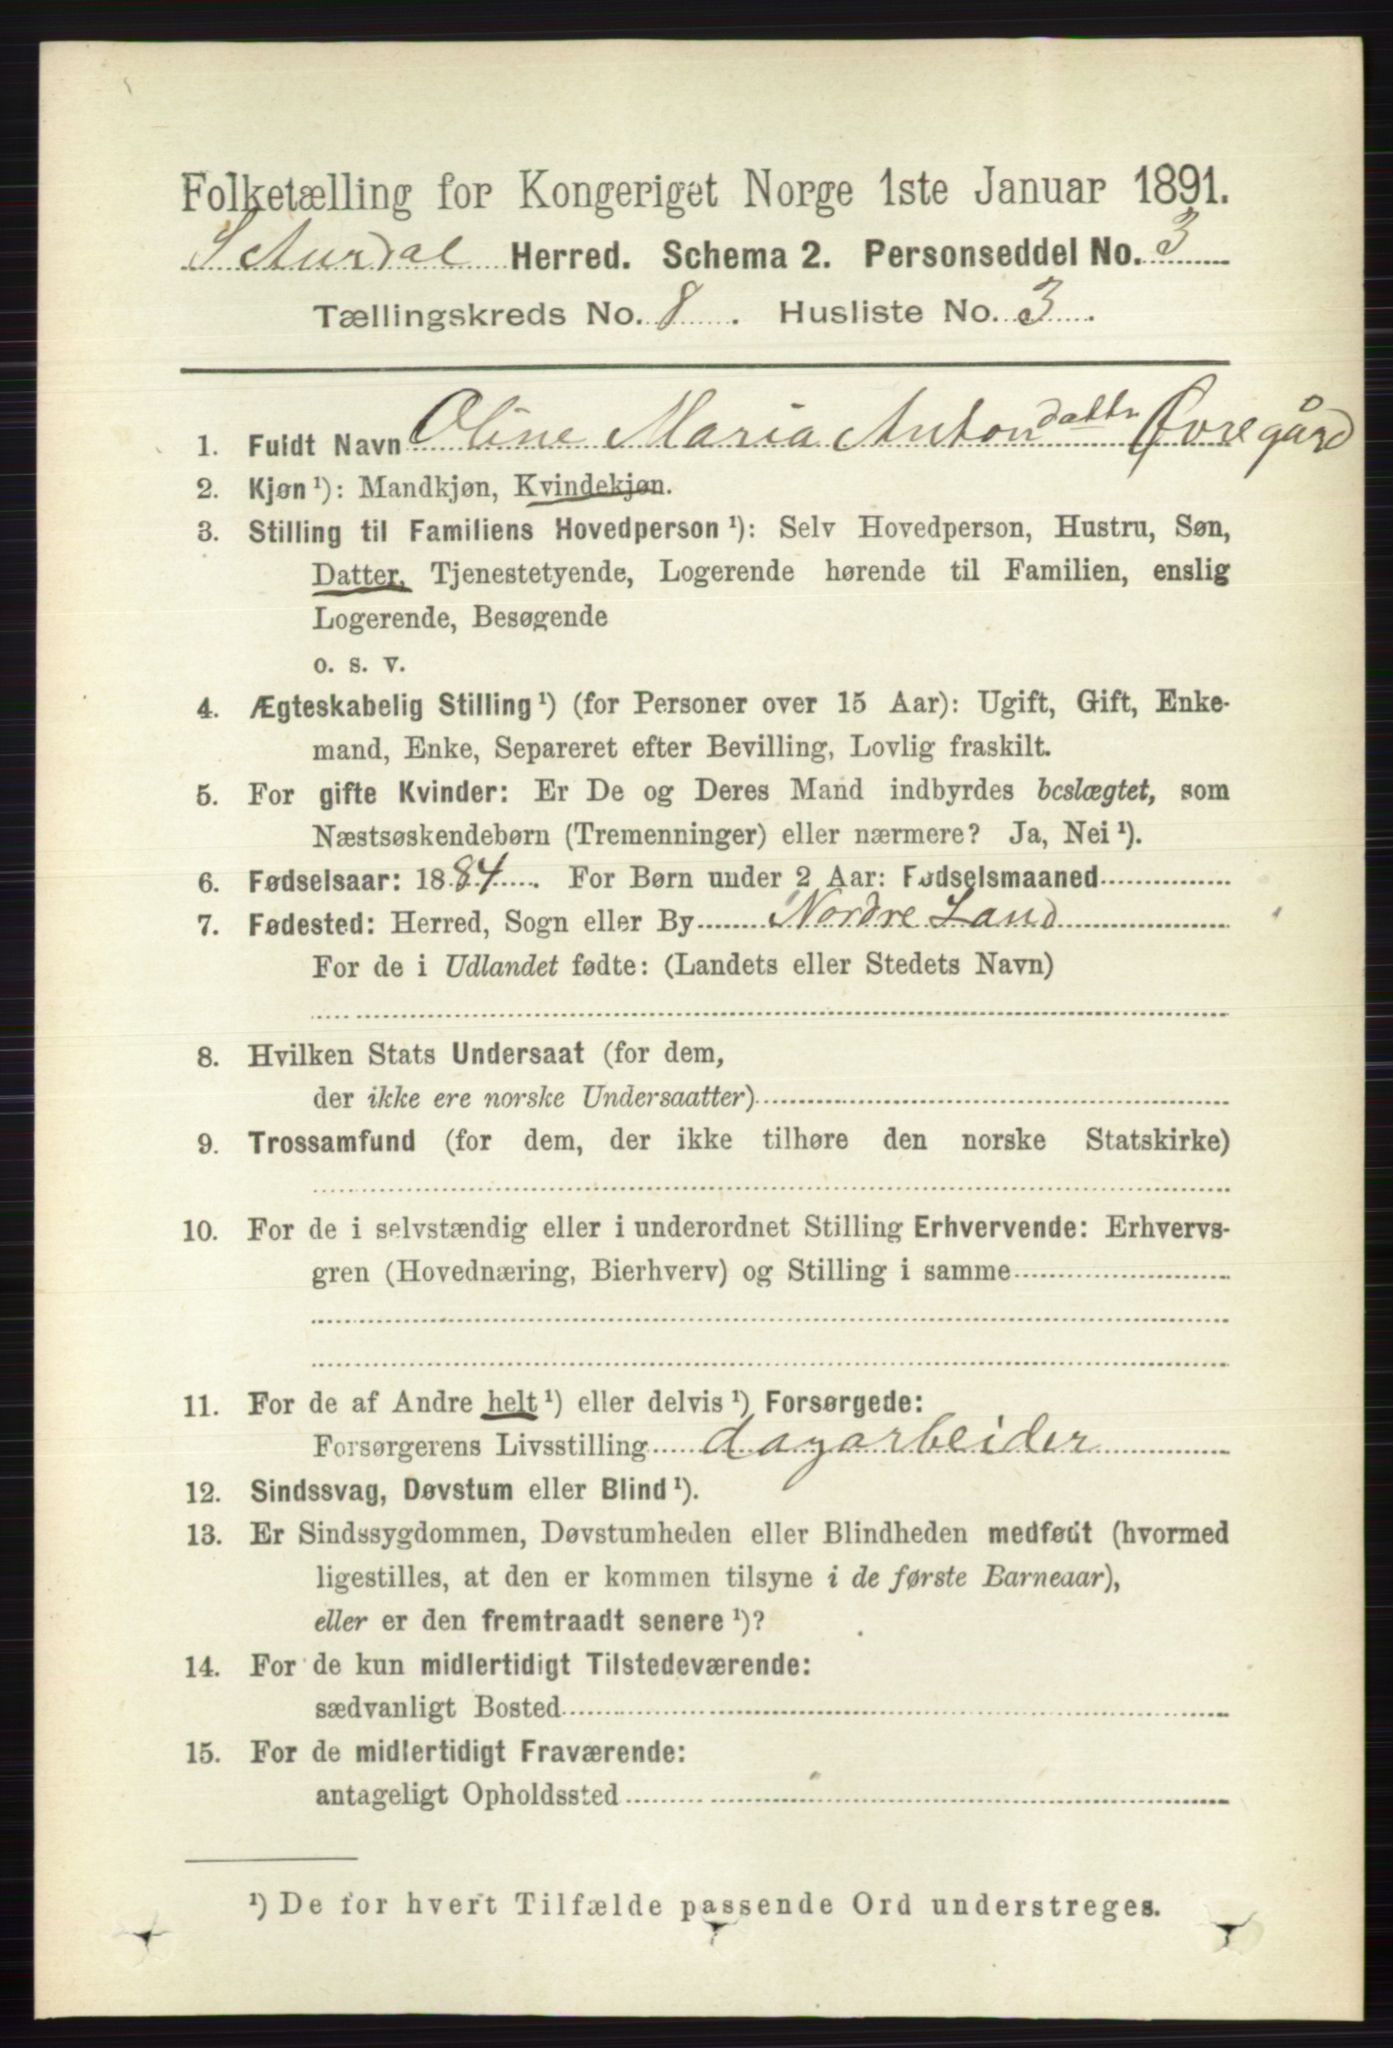 Folketælling for Kongeriget Norge 1ste Januar 1891.
S Aurdal Herred. Schema 2. Personseddel No. 3
Tællingskreds No. 8. Husliste No. 3.
1. Fuldt Navn Oline Maria Antondattr Øvregård
2. Kjøn ¹): Mandkjøn, Kvindekjøn.
3. Stilling til Familiens Hovedperson ¹): Selv Hovedperson, Hustru, Søn,
Datter, Tjenestetyende, Logerende hørende til Familien, enslig
Logerende, Besøgende
o. s. v.
4. Ægteskabelig Stilling ¹) (for Personer over 15 Aar): Ugift, Gift, Enke-
mand, Enke, Separeret efter Bevilling, Lovlig fraskilt.
5. For gifte Kvinder: Er De og Deres Mand indbyrdes beslægtet, som
Næstsøskendebørn (Tremenninger) eller nærmere? Ja, Nei ¹).
6. Fødselsaar: 1884. For Børn under 2 Aar: Fødselsmaaned
7. Fødested: Herred, Sogn eller By Nordre Land
For de i Udlandet fødte: (Landets eller Stedets Navn)
8. Hvilken Stats Undersaat (for dem,
der ikke ere norske Undersaatter)
9. Trossamfund (for dem, der ikke tilhøre den norske Statskirke)
10. For de i selvstændig eller i underordnet Stilling Erhvervende: Erhvervs-
gren (Hovednæring, Bierhverv) og Stilling i samme
11. For de af Andre helt ¹) eller delvis ¹) Forsørgede:
Forsørgerens Livsstilling dagarbeider
12. Sindssvag, Døvstum eller Blind ¹).
13. Er Sindssygdommen, Døvstumheden eller Blindheden medfødt (hvormed
ligestilles, at den er kommen tilsyne i de første Barneaar),
eller er den fremtraadt senere ¹)?
14. For de kun midlertidigt Tilstedeværende:
sædvanligt Bosted
15. For de midlertidigt Fraværende:
antageligt Opholdssted
¹) De for hvert Tilfælde passende Ord understreges.